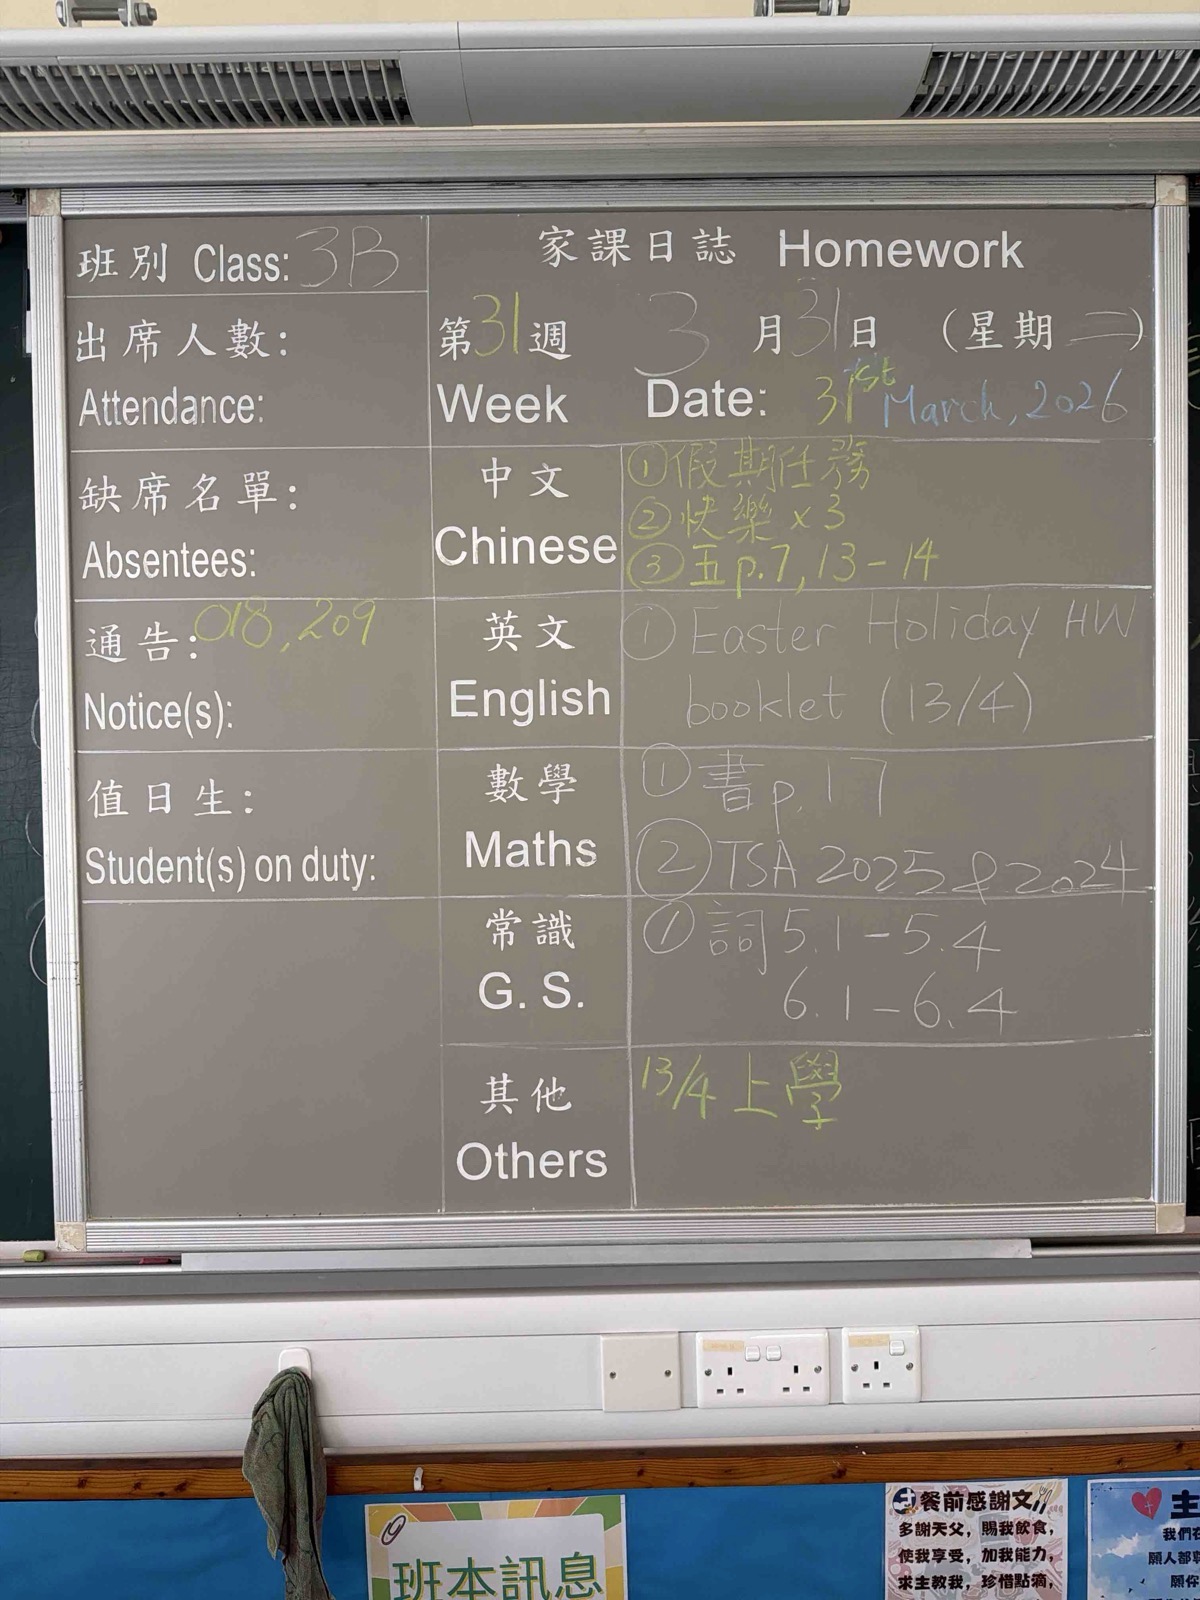 班別 Class: 3B
家課日誌 Homework
出席人數:
Attendance:
第31週 3月31日 (星期二)
Week Date: 31st March, 2026
缺席名單:
Absentees:
中文
Chinese
①假期任務
②快樂x3
③五p.7, 13-14
通告: 018, 209
Notice(s):
英文
English
① Easter Holiday HW
booklet (13/4)
值日生:
Student(s) on duty:
數學
Maths
①書p.17
②TSA 2025 & 2024
常識
G. S.
①詞5.1-5.4
6.1-6.4
其他
Others
13/4 上學
班本訊息
餐前感謝文
多謝天父，賜我飲食，
使我享受，加我能力，
求主教我，珍惜點滴，
主
我們在
願人都
願你